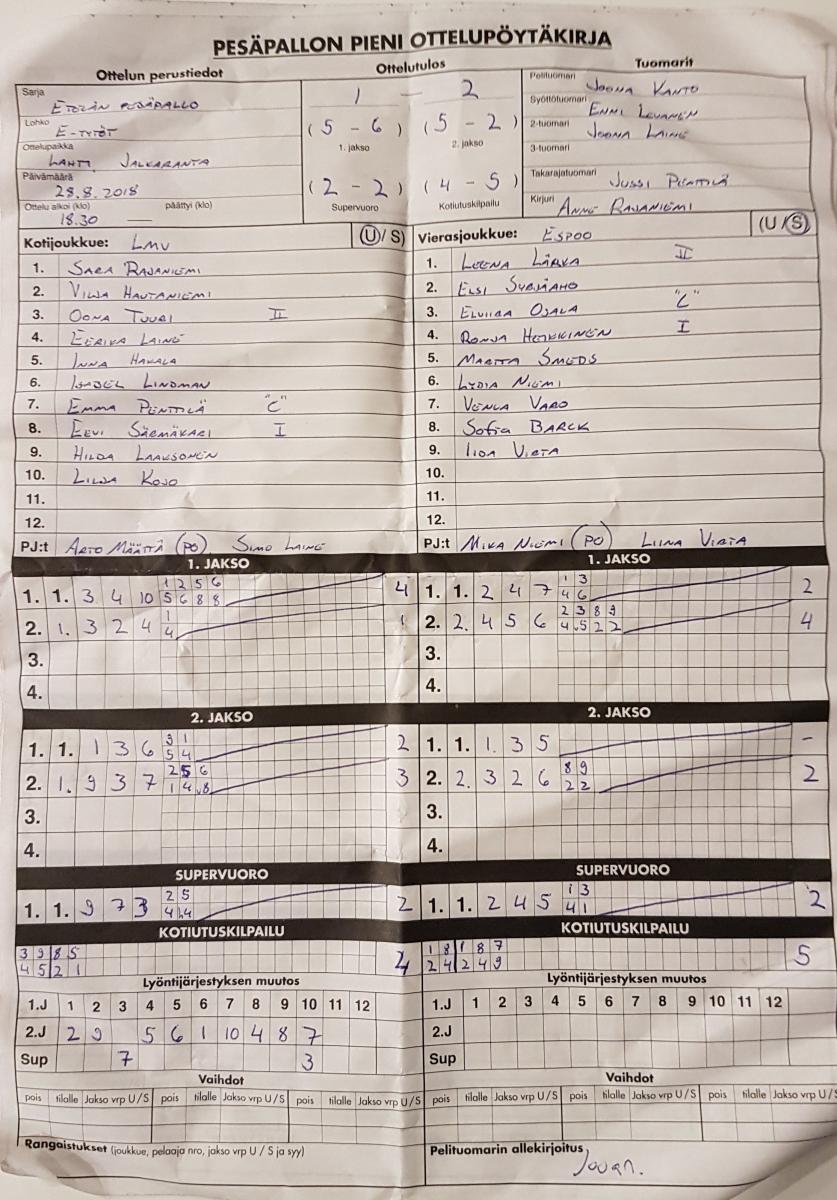 PESÄPALLON PIENI OTTELUPÖYTÄKIRJA
Ottelun perustiedot Ottelutulos Tuomarit
Sarja
ETELÄN PESÄPALLO
Lohko E-TYTÖT
Ottelupaikka
LAHTI, JALKARANTA
Päivämäärä
28.8.2018
Ottelu alkoi (klo) päättyi (klo)
18.30 —
1 — 2
(5 - 6) (5 - 2)
1. jakso 2. jakso
(2 - 2) (4 - 5)
Supervuoro Kotiutuskilpailu
Pelituomari JOONA KANTO
Syöttötuomari ENNI LEVANEN
2-tuomari JOONA LAINE
3-tuomari
Takarajatuomari JUSSI PENTTILÄ
Kirjuri ANNE RAJANIEMI
Kotijoukkue: LMV (U / S)
1. SARA RAJANIEMI
2. VILJA HAUTANIEMI
3. OONA TUURI II
4. EERIKA LAINE
5. INNA HAKALA
6. ISABEL LINDMAN
7. EMMA PENTTILÄ "C"
8. EEVI SÄRMÄKARI I
9. HILDA LAAKSONEN
10. LILJA KOJO
11.
12.
PJ:t ARTO MÄÄTTÄ (PO) SIMO LAINE
Vierasjoukkue: ESPOO (U / S)
1. LEENA LÄRKA II
2. ELSI SYRJÄAHO
3. ELVIIRA OJALA "C"
4. RONJA HEIKKINEN I
5. MARTTA SMEDS
6. LYDIA NIEMI
7. VENLA VARO
8. SOFIA BARCK
9. IIDA VIRTA
10.
11.
12.
PJ:t MIKA NIEMI (PO) LIINA VIRTA
1. JAKSO 1. JAKSO
1 2 5 6
1. 1. 3 4 10 5 6 8 8 4
1
2. 1. 3 2 4 4 1
3.
4.
1 3
1. 1. 2 4 7 4 6 2
2 3 8 9
2. 2. 4 5 6 4 .5 2 2 4
3.
4.
2. JAKSO 2. JAKSO
3 1
1. 1. 1 3 6 5 4 2
2 5 6
2. 1. 9 3 7 1 4 .8 3
3.
4.
1. 1. 1. 3 5 -
8 9
2. 2. 3 2 6 2 2 2
3.
4.
SUPERVUORO SUPERVUORO
2 5
1. 1. 9 7 3 4 1.4 2
1 3
1. 1. 2 4 5 4 1 2
KOTIUTUSKILPAILU KOTIUTUSKILPAILU
3 9 8 5
4 5 2 1 4
1 8 1 8 7
2 4 2 4 9 5
Lyöntijärjestyksen muutos Lyöntijärjestyksen muutos
1.J 1 2 3 4 5 6 7 8 9 10 11 12
2.J 2 9 5 6 1 10 4 8 7
Sup 7 3
1.J 1 2 3 4 5 6 7 8 9 10 11 12
2.J
Sup
Vaihdot Vaihdot
pois tilalle Jakso vrp U / S pois tilalle Jakso vrp U / S pois tilalle Jakso vrp U / S
pois tilalle Jakso vrp U / S pois tilalle Jakso vrp U / S pois tilalle Jakso vrp U / S
Rangaistukset (joukkue, pelaaja nro, jakso vrp U / S ja syy)
Pelituomarin allekirjoitus